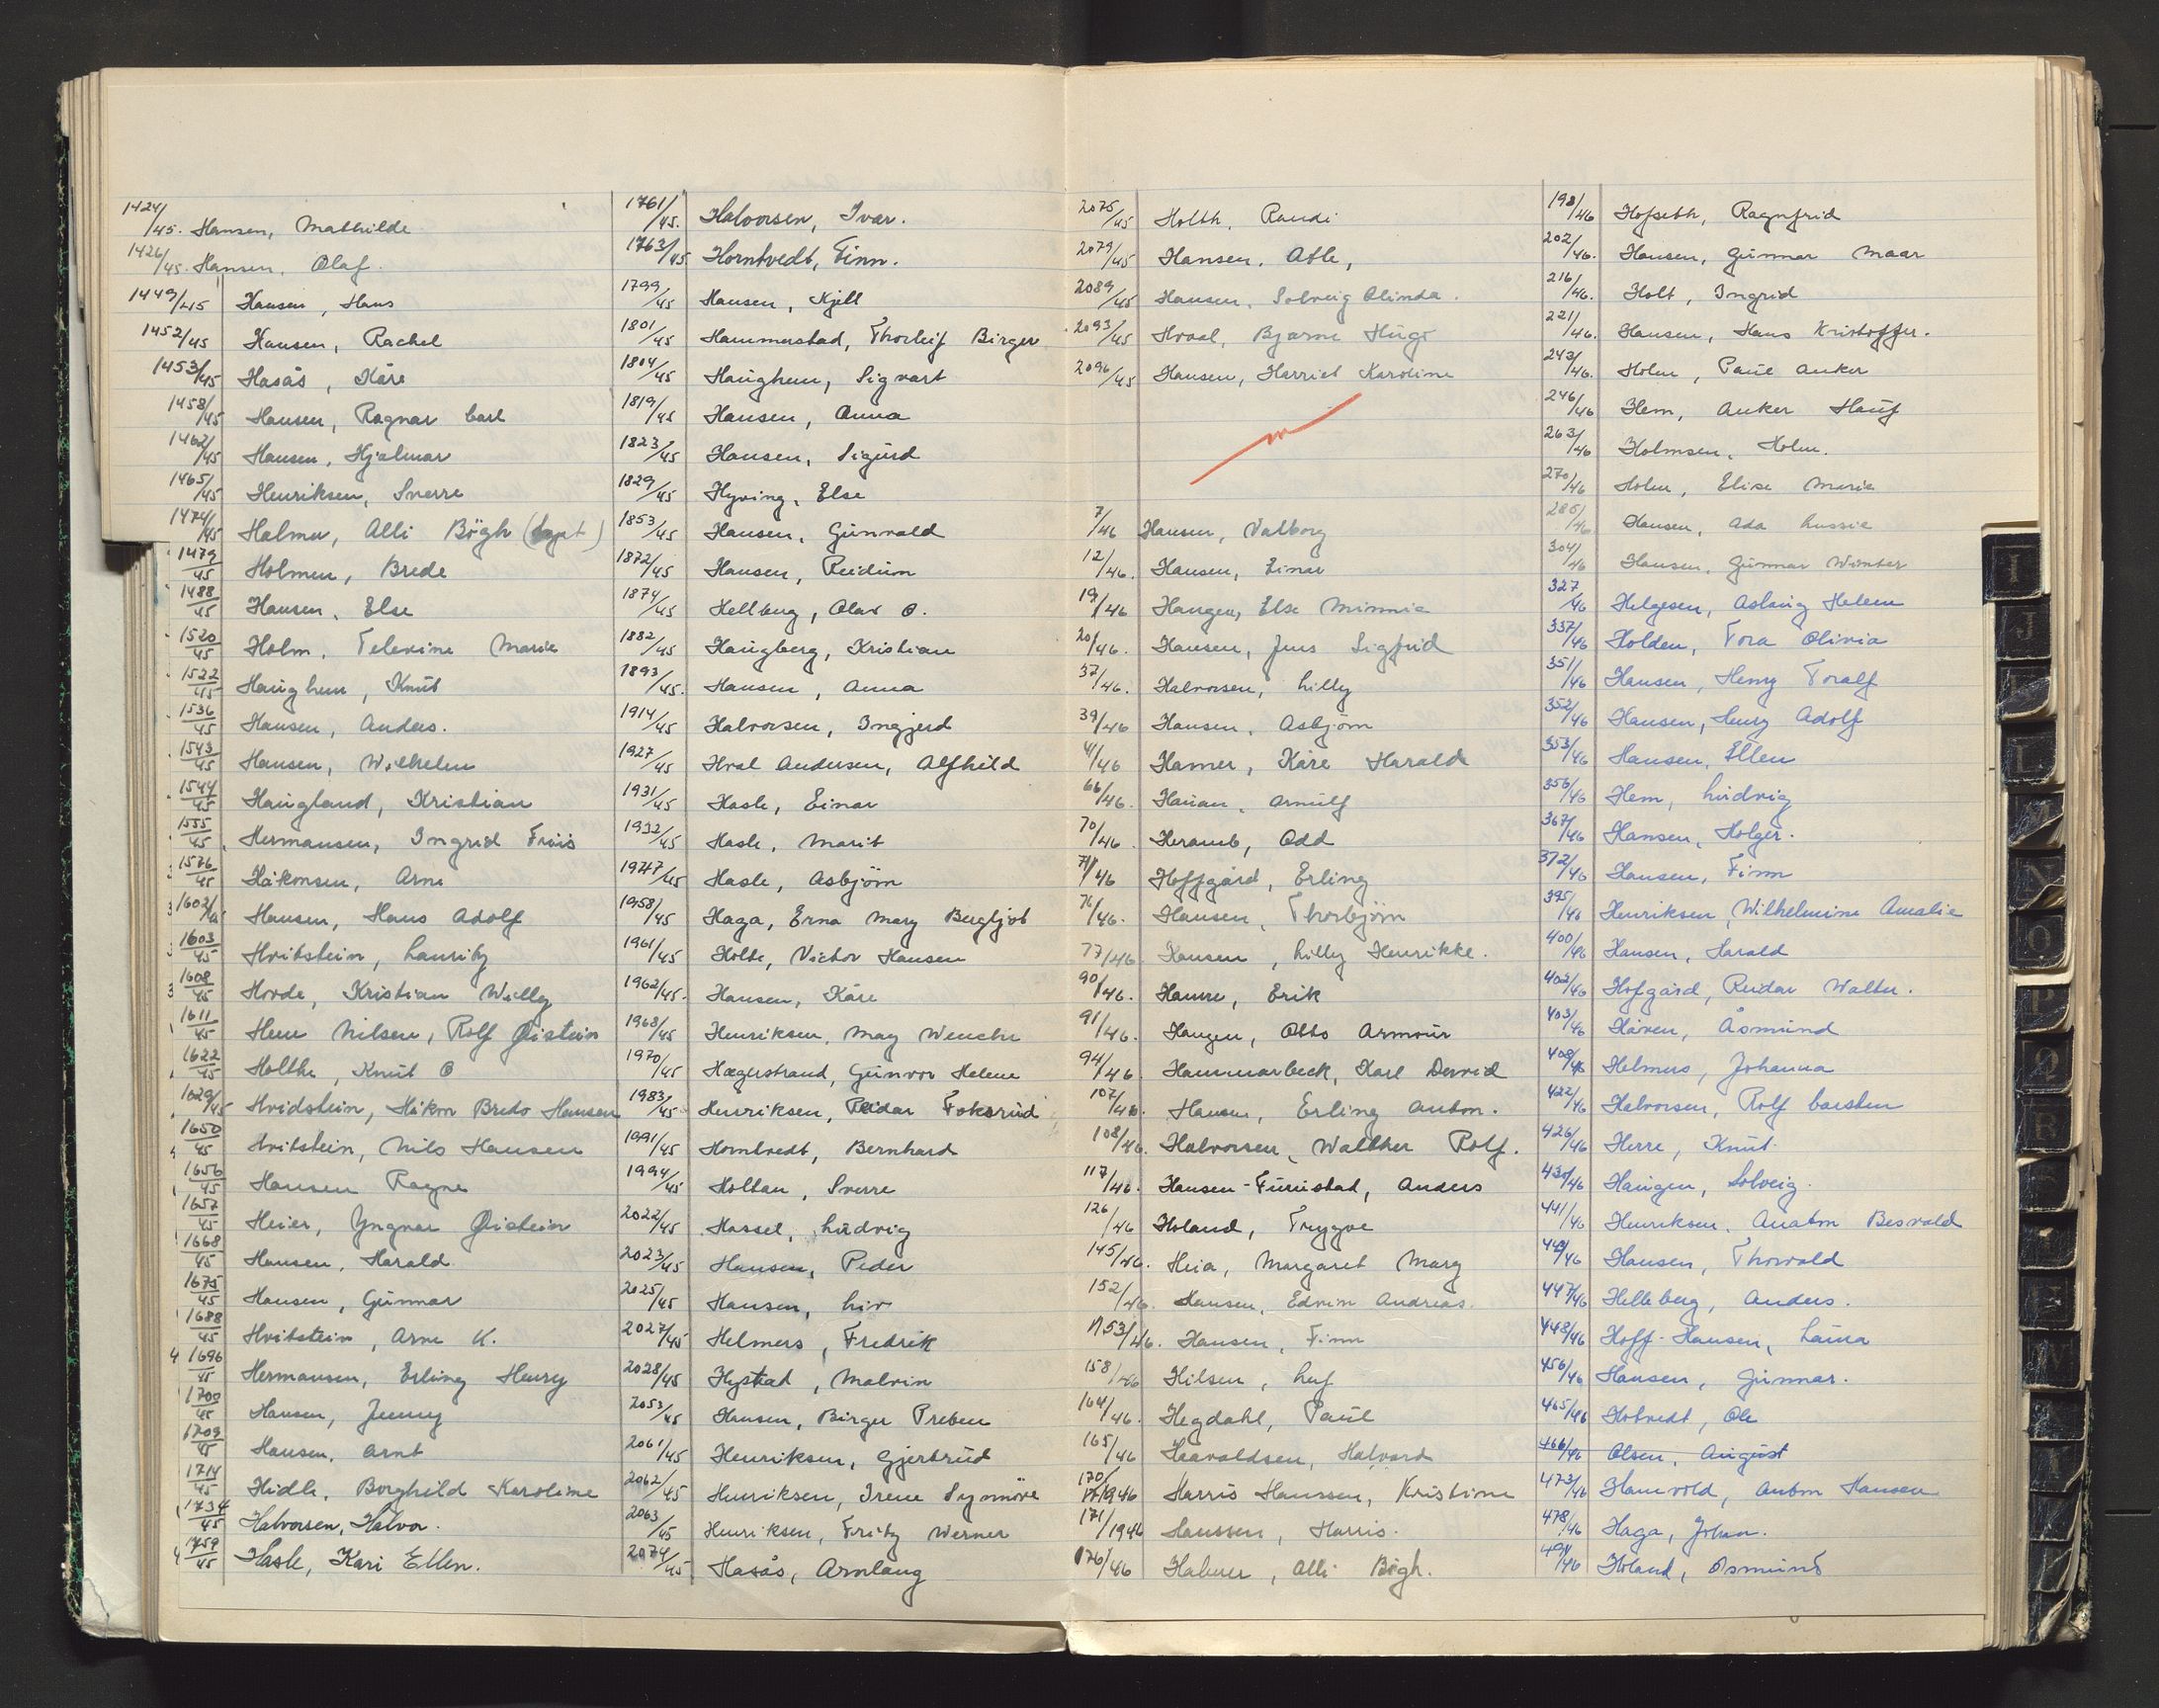 1424/45. Hansen, Mathilde
1426/45. Hansen, Olaf.
1449/45 Hansen, Hans
1452/45 Hansen, Rachel
1453/45 Hasås, Kåre
1458/45 Hansen, Ragnar Carl
1462/45 Hansen, Hjalmar
1465/45 Henriksen, Sverre
1474/45 Halmer, Alli Bögh
1479/45 Holmen, Brede
1488/45 Hansen, Else
1520/45 Holm, Televine Marie
1522/45 Haughem, Knut
1536/45 Hansen, Anders.
1543/45 Hansen, Wilhelm
1544/45 Haugland, Kristian
1555/45 Hermansen, Ingrid Friis
1576/45 Håkonsen, Arne
1602/45 Hansen, Hans Adolf
1603/45 Hvitstein, Lauritz
1608/45 Horde, Kristian Willy
1611/45 Hem Nilsen, Rolf Øistein
1622/45 Holthe, Knut O
1629/45 Hvidstein, Håkon Bredo Hansen
1650/45 Hvitstein, Nils Hansen
1656/45 Hansen Ragna
1657/45 Heier, Yngvar Øistein
1668/45 Hansen, Harald.
1675/45 Hansen, Gunnar
1688/45 Hvitstein, Arne K.
1696/45 Hermansen, Erling Henry
1700/45 Hansen, Jenny
1709/45 Hansen, Arnt
1714/45 Hidle, Borghild Karoline
1734/45 Halvorsen, Halvor.
1759/45 Hasle, Kari Ellen.
1761/45. Halvorsen, Ivar.
1763/45 Horntvedt, Finn.
1799/45 Hansen, Kjell
1801/45 Hammerstad, Thorleif Birger
1804/45 Haughem, Sigvart
1819/45 Hansen, Anna
1823/45 Hansen, Sigurd
1829/45 Hyving, Else
1853/45 Hansen, Gunvald
1872/45 Hansen, Reidun
1874/45 Hellberg, Olav O.
1882/45 Haugberg, Kristian
1893/45. Hansen, Anna
1914/45 Halvorsen, Ingjerd
1927/45 Hval Andersen, Alfhild
1931/45 Hasle, Einar
1932/45 Hasle, Marit
1947/45 Hasle, Asbjörn
1958/45 Haga, Erna Mary Bergljot
1961/45 Holte, Victor Hansen
1962/45. Hansen, Kåre
1968/45 Henriksen, May Wenche
1970/45 Hægerstrand, Gunvor Helene
1983/45 Henriksen, Reidar Foksrud
1991/45 Horntvedt, Bernhard
1994/45 Holtan, Sverre
2022/45 Hassel, Ludvig
2023/45 Hansen, Peder
2025/45 Hansen, Liv
2027/45 Helmers, Fredrik
2028/45 Hystad, Malvin
2053/45 Hansen, Birger Preben
2061/45 Henriksen, Gjertrud
2062/45 Henriksen, Irene Synnöve
2063/45 Henriksen, Fritz Werner
2074/45 Hasås, Arnlaug
2075/45 Holth, Randi
2079/45 Hansen, Atle,
2089/45 Hansen, Solveig Olinda.
2093/45 Hval, Bjarne Hugo
2096/45 Hansen, Harriet Karoline
7/46 Hansen, Valborg
12/46. Hansen, Einar
19/46 Haugen, Else Minnie
20/46. Hansen, Jens Sigfrid
37/46. Halvorsen, Lilly
39/46 Hansen, Asbjörn
41/46 Hamer, Kåre Harald
66/46. Hauan, Arnulf
70/46. Heramb, Odd
71/46 Hoffgård, Erling
76/46. Hansen, Thorbjörn
77/46 Hansen, Lilly Henrikke.
90/46. Hamre, Erik
91/46. Haugen, Otto Armour
94/46. Hammarbeck, Karl Dervid
107/46. Hansen, Erling Anton.
108/46. Halvorsen, Walther Rolf.
117/46. Hansen-Furustad, Anders
126/46 Holand, Tryggve
145/46. Heia, Margaret Mary
152/46. Hansen, Edvin Andreas.
153/46. Hansen, Finn
158/46 Hilsen, Leif
164/46. Hegdahl, Paul
165/46 Haavaldsen, Halvard
170/1946 Harris Hanssen, Kristine
171/1946 Hanssen, Harris.
176/46 Halmer, Alli Bögh.
198/46 Hofseth, Ragnfrid
202/46. Hansen, Gunnar Maar
216/46. Holt, Ingrid
221/46. Hansen, Hans Kristoffer.
243/46. Holm, Paul Anker
246/46 Hem, Anker Hauf
263/46 Holmsen, Holm.
270/46 Holm, Elise Marie
285/46 Hansen, Ada Lussie
304/46 Hansen, Gunnar Winter
327/46 Helgesen, Aslaug Helene
337/46 Holden, Tora Olivia
351/46 Hansen, Henry Toralf
352/46 Hansen, Henry Adolf
353/46 Hansen, Ellen
356/46 Hem, Ludvig
367/46 Hansen, Holger.
372/46 Hansen, Finn
395/46 Henriksen, Wilhelmine Amalie
400/46 Hansen, Harald
402/46 Hofgård, Reidar Walter.
403/46 Håven, Åsmund
408/46 Helmers, Johanna
422/46 Halvorsen, Rolf Carsten
426/46 Herre, Knut.
430/46 Haugen, Solveig.
441/46 Henriksen, Anatm Besvald
442/46 Hansen, Thorvald
447/46 Helleberg, Anders.
448/46 Hoff-Hansen, Laura
456/46 Hansen, Gunnar.
465/46 Hotvedt, Ole
466/46 Olsen, August
473/46 Hamvold, Anton Hansen
478/46 Haga, Johan.
491/46 Holand, Osmund
I
J
L
N
O
P
Q
R